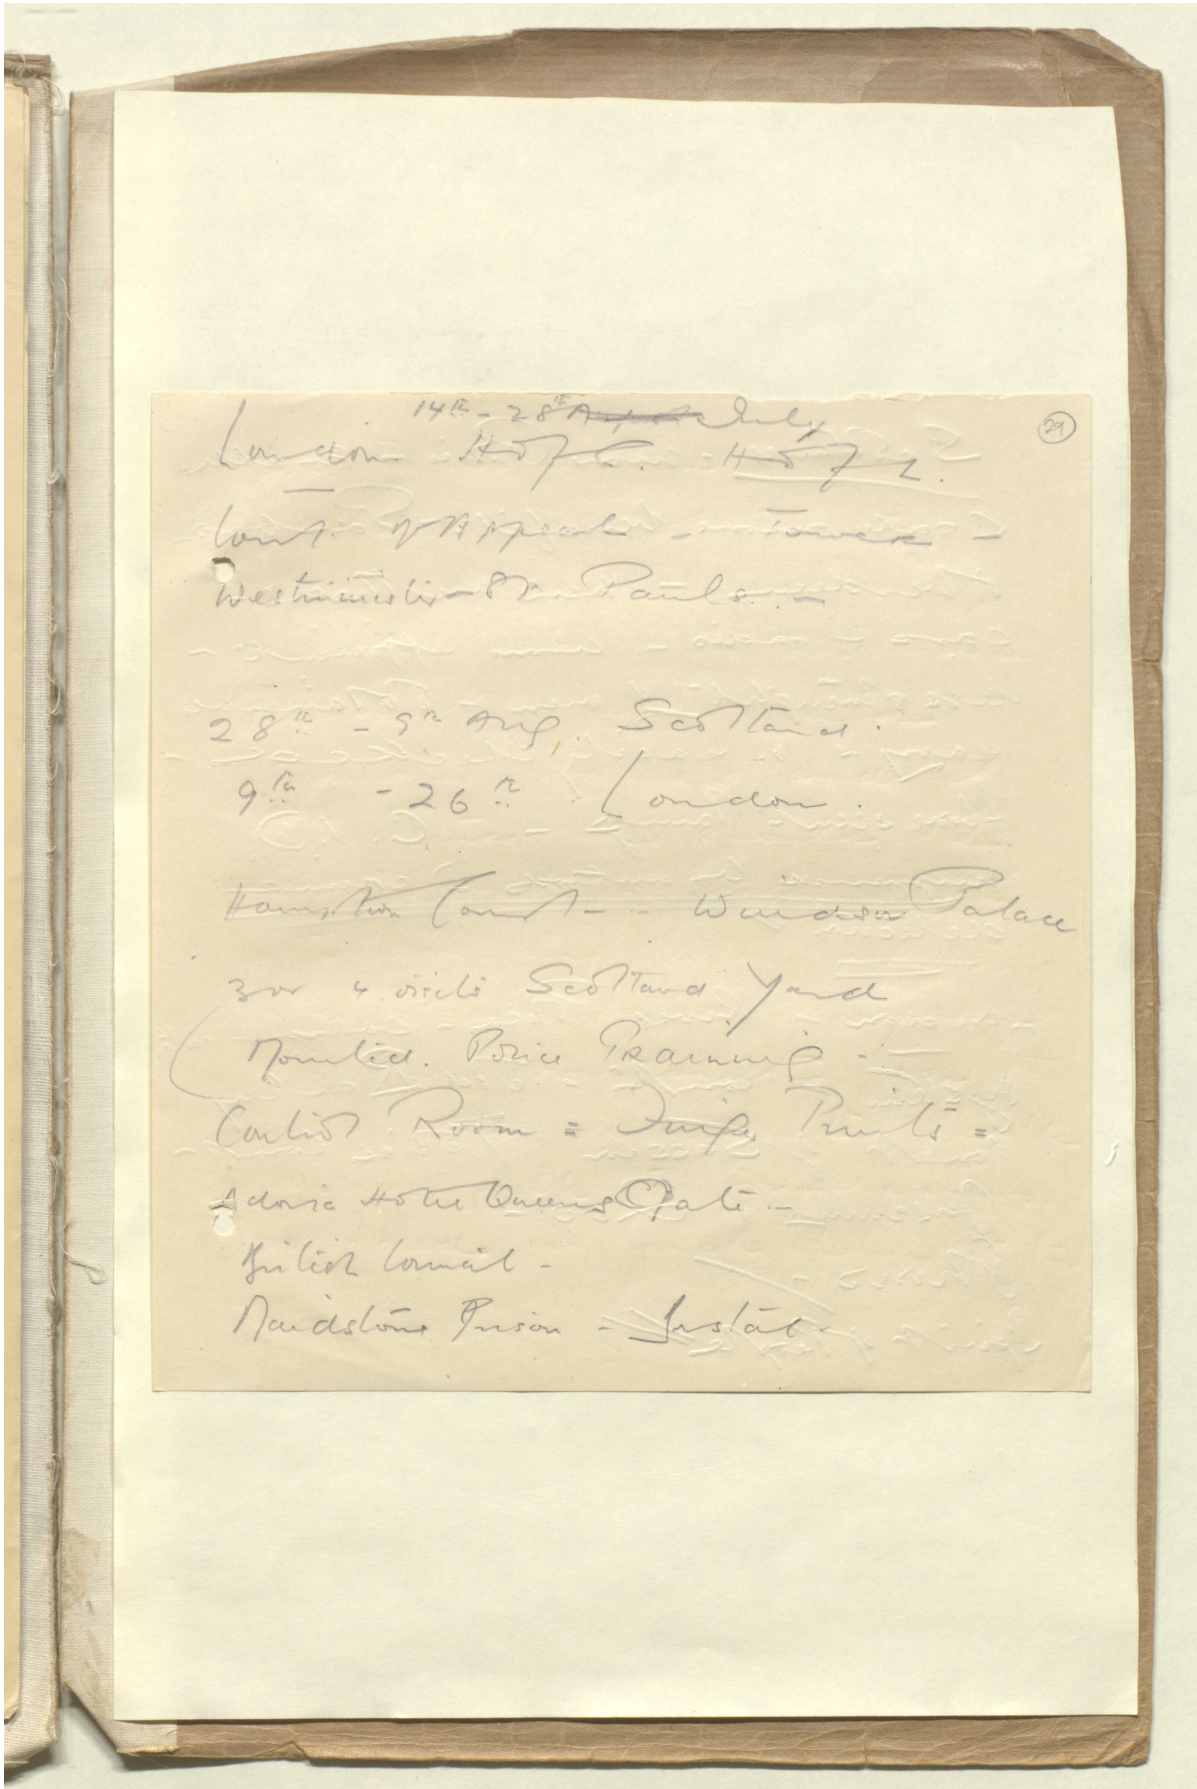 29
14th - 28th August July
London H of C. H of L.
Court of Appeal - Tower -
Westminster - St Pauls. -
28th - 9th Aug. Scotland.
9th - 26th London.
Hampton Court - - Windsor Palace
3 or 4 visits Scotland Yard
Mounted. Police Training -
Control Room = Finger Prints =
Adoria Hotel Queens Gate -
British Council -
Maidstone Prison -